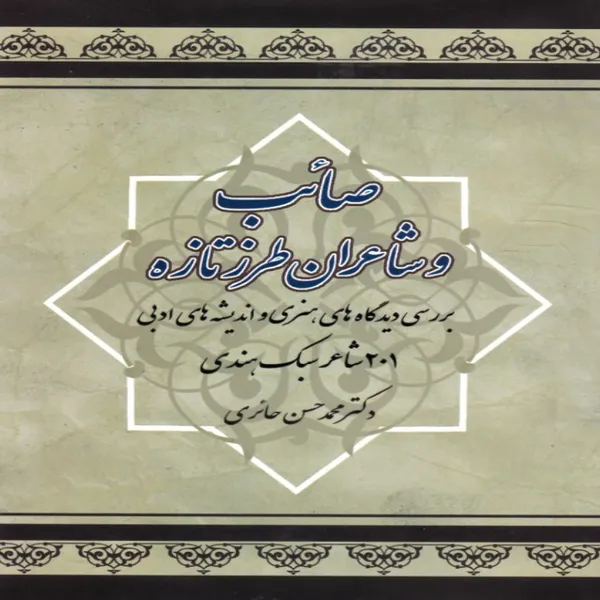 صائب
و شاعران طرز تازه
بررسی دیدگاه های هنری و اندیشه های ادبی
۲۰۱ شاعر سبک هندی
دکتر محمد حسن حائری